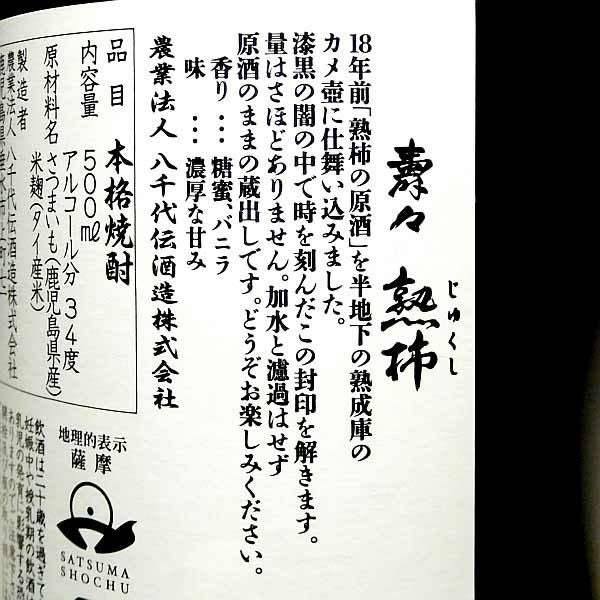 壽々 熟柿
じゅくし
18年前「熟柿の原酒」を半地下の熟成庫の
カメ壺に仕舞い込みました。
漆黒の闇の中で時を刻んだこの封印を解きます。
量はさほどありません。加水と濾過はせず
原酒のままの蔵出しです。どうぞお楽しみください。
香り … 糖蜜、バニラ
味 … 濃厚な甘み
農業法人 八千代伝酒造株式会社
品目 本格焼酎
内容量 500㎖
アルコール分 34度
原材料名 さつまいも(鹿児島県産)
米麹(タイ産米)
製造者
農業法人 八千代伝酒造株式会社
鹿児島県垂水市
地理的表示
薩摩
SATSUMA
SHOCHU
飲酒は二十歳を過ぎて
妊娠中や授乳期の飲酒は
乳児の発育に影響する恐